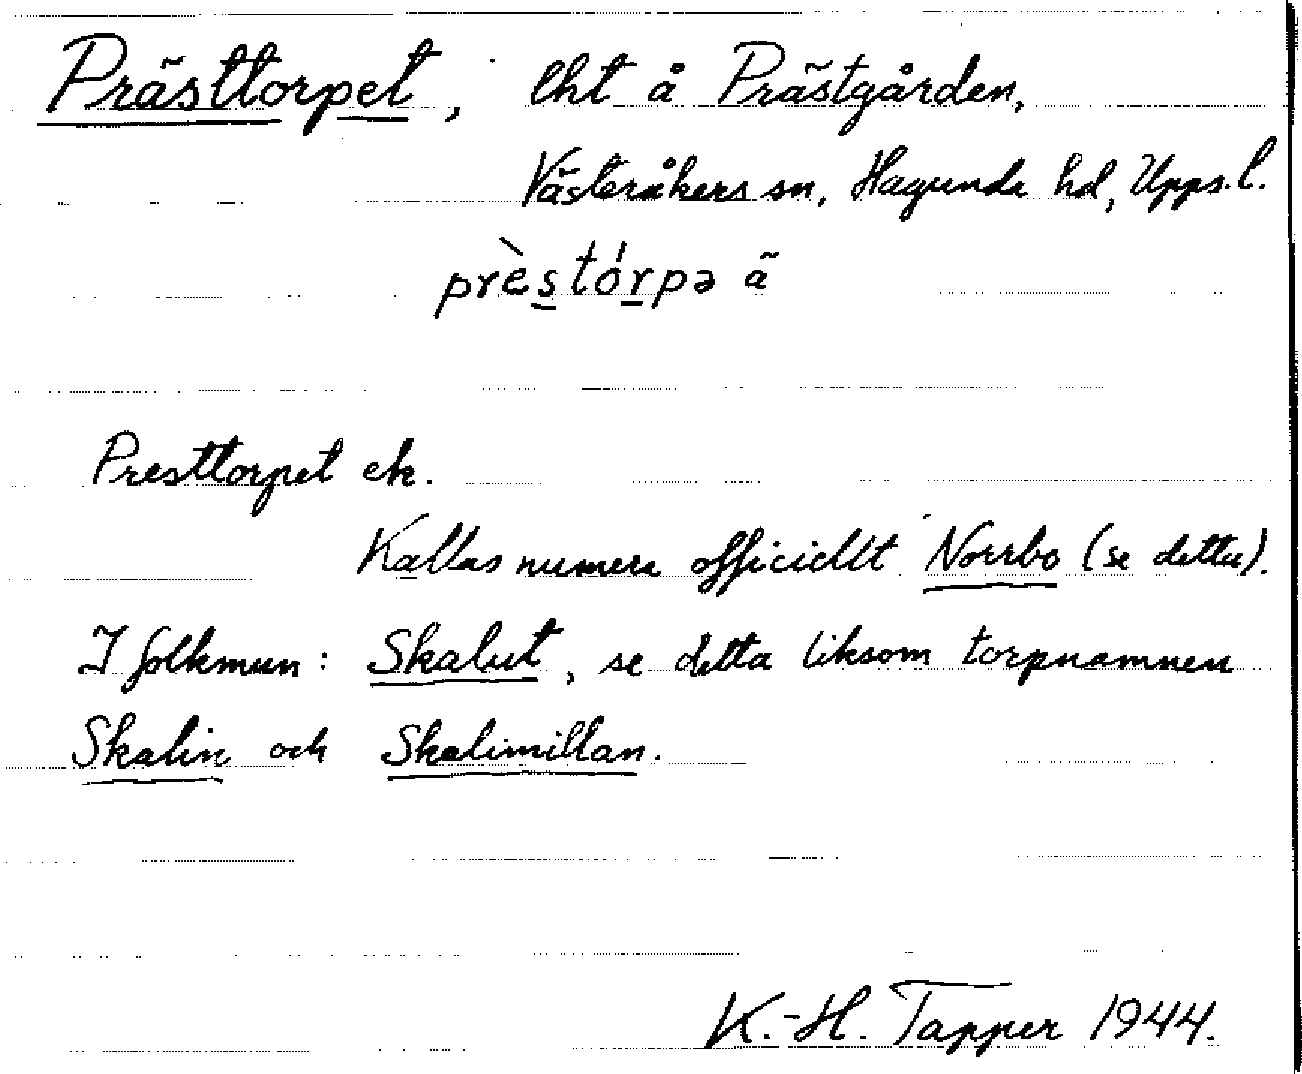 Prästtorpet, lht å Prästgården,
Västeråkers sn, Hagunda hd, Upps. l.
prèstórpə ã
Presttorpet ek.
Kallas numera officiellt Norrbo (se detta).
I folkmun: Skalut, se detta liksom torpnamnen
Skalin och Skalimillan.
K.-H. Tapper 1944.